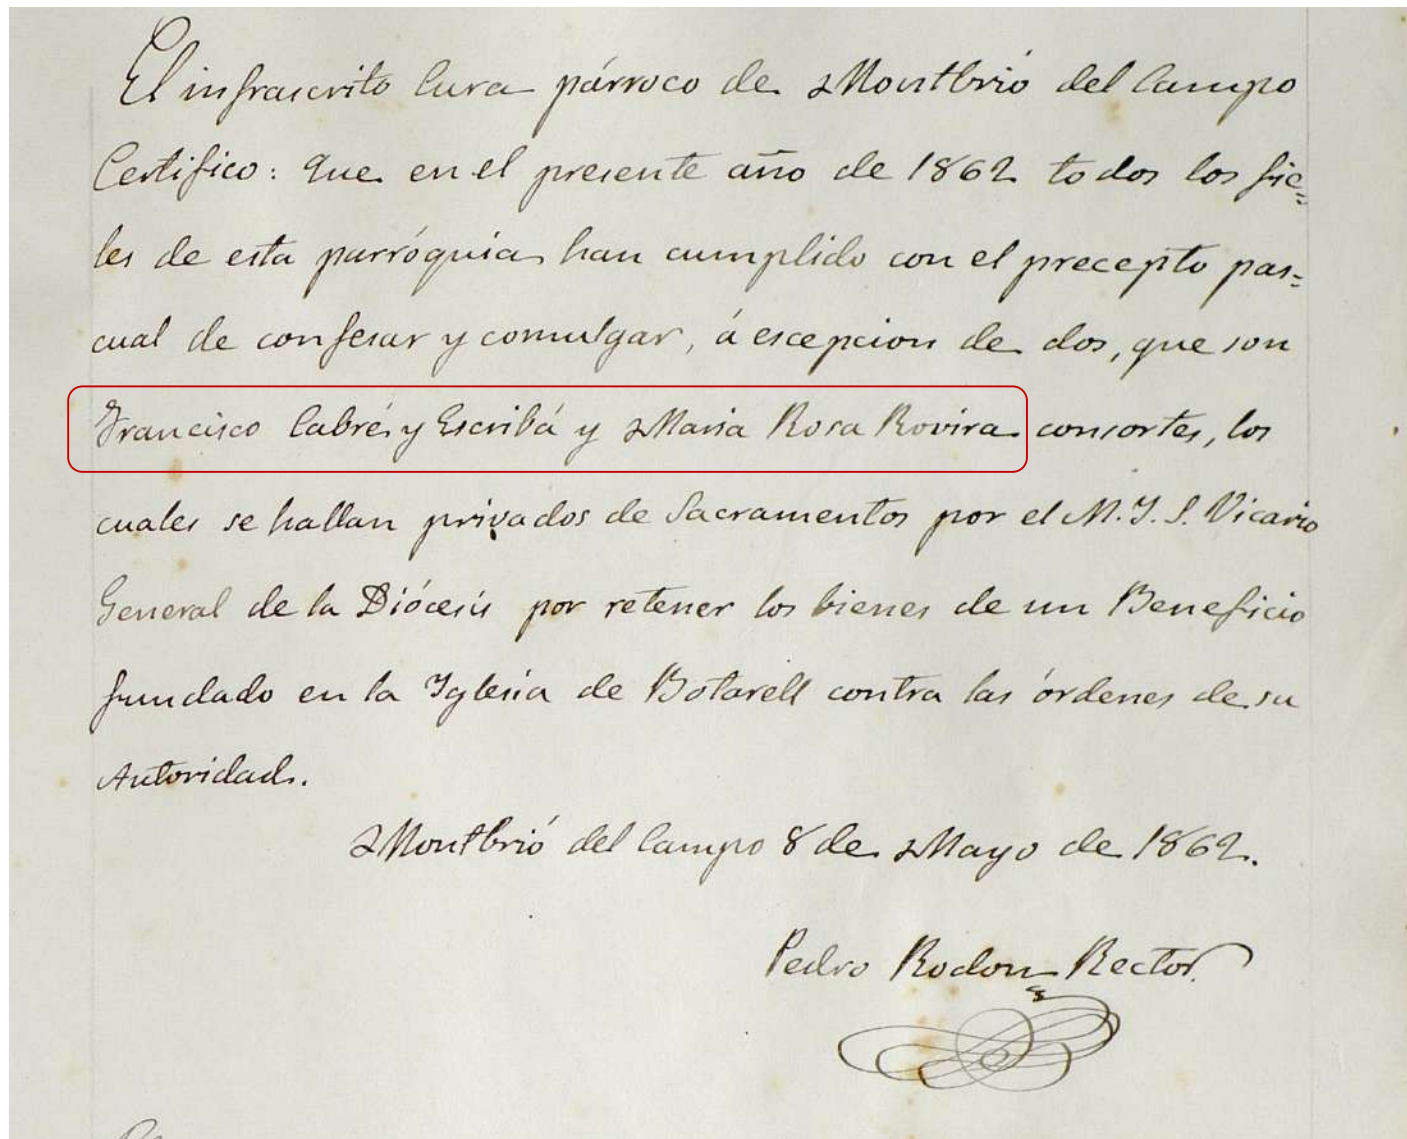 El infrascrito Cura párroco de Montbrió del Campo
Certifico: Que en el presente año de 1862 todos los fie=
les de esta parróquia han cumplido con el precepto pas=
cual de confesar y comulgar, á escepcion de dos, que son
Francisco Cabré y Escribá y Maria Rosa Rovira consortes, los
cuales se hallan privados de Sacramentos por el M. I. S. Vicario
General de la Diócesis por retener los bienes de un Beneficio
fundado en la Iglesia de Botarell contra las órdenes de su
Autoridad.
Montbrió del Campo 8 de Mayo de 1862.
Pedro Rodon Rector.